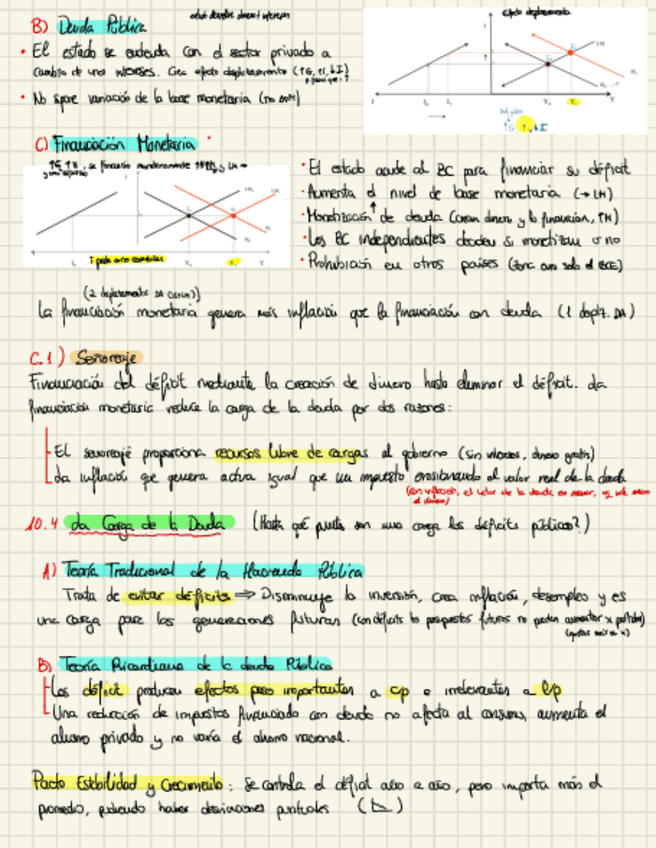 B) Deuda Pública
• El estado se endeuda con el sector privado a
cambio de unos intereses. Crea efecto desplazamiento (↑G, ↑i, ↓I)
• No supone variación de la base monetaria (no ΔOM)
efecto desplazamiento
LM
Y₀ Y₁
↑G ↑i, ↓I
C) Financiación Monetaria
• El estado acude al BC para financiar su déficit
• Aumenta el nivel de base monetaria (→ LM)
• Monetización de deuda (crean dinero y lo financian, ↑M)
• Los BC independientes deciden si monetizan o no
• Prohibición en otros países (zona euro solo el BCE)
(2 desplazamientos DA (IS+LM))
La financiación monetaria genera más inflación que la financiación con deuda (1 despl. DA)
C.1) Señoreaje
Financiación del déficit mediante la creación de dinero hasta eliminar el déficit. La
financiación monetaria reduce la carga de la deuda por dos razones:
El señoreaje proporciona recursos libre de cargas al gobierno (sin intereses, dinero gratis)
La inflación que genera actúa igual que un impuesto erosionando el valor real de la deuda
(con inflación, el valor de la deuda es menor,
10.4 La Carga de la Deuda (Hasta qué punto son una carga los déficits públicos?)
A) Teoría Tradicional de la Hacienda Pública
Trata de evitar déficits ⇒ Disminuye la inversión, crea inflación, desempleo y es
una carga para las generaciones futuras (con déficits los presupuestos futuros no pueden aumentar x partidas)
B) Teoría Ricardiana de la deuda Pública
Los déficit producen efectos poco importantes a cp e irrelevantes a lp
Una reducción de impuestos financiado con deuda no afecta al consumo, aumenta el
ahorro privado y no varía el ahorro nacional.
Pacto Estabilidad y Crecimiento: Se controla el déficit año a año, pero importa más el
promedio, pudiendo haber desviaciones puntuales